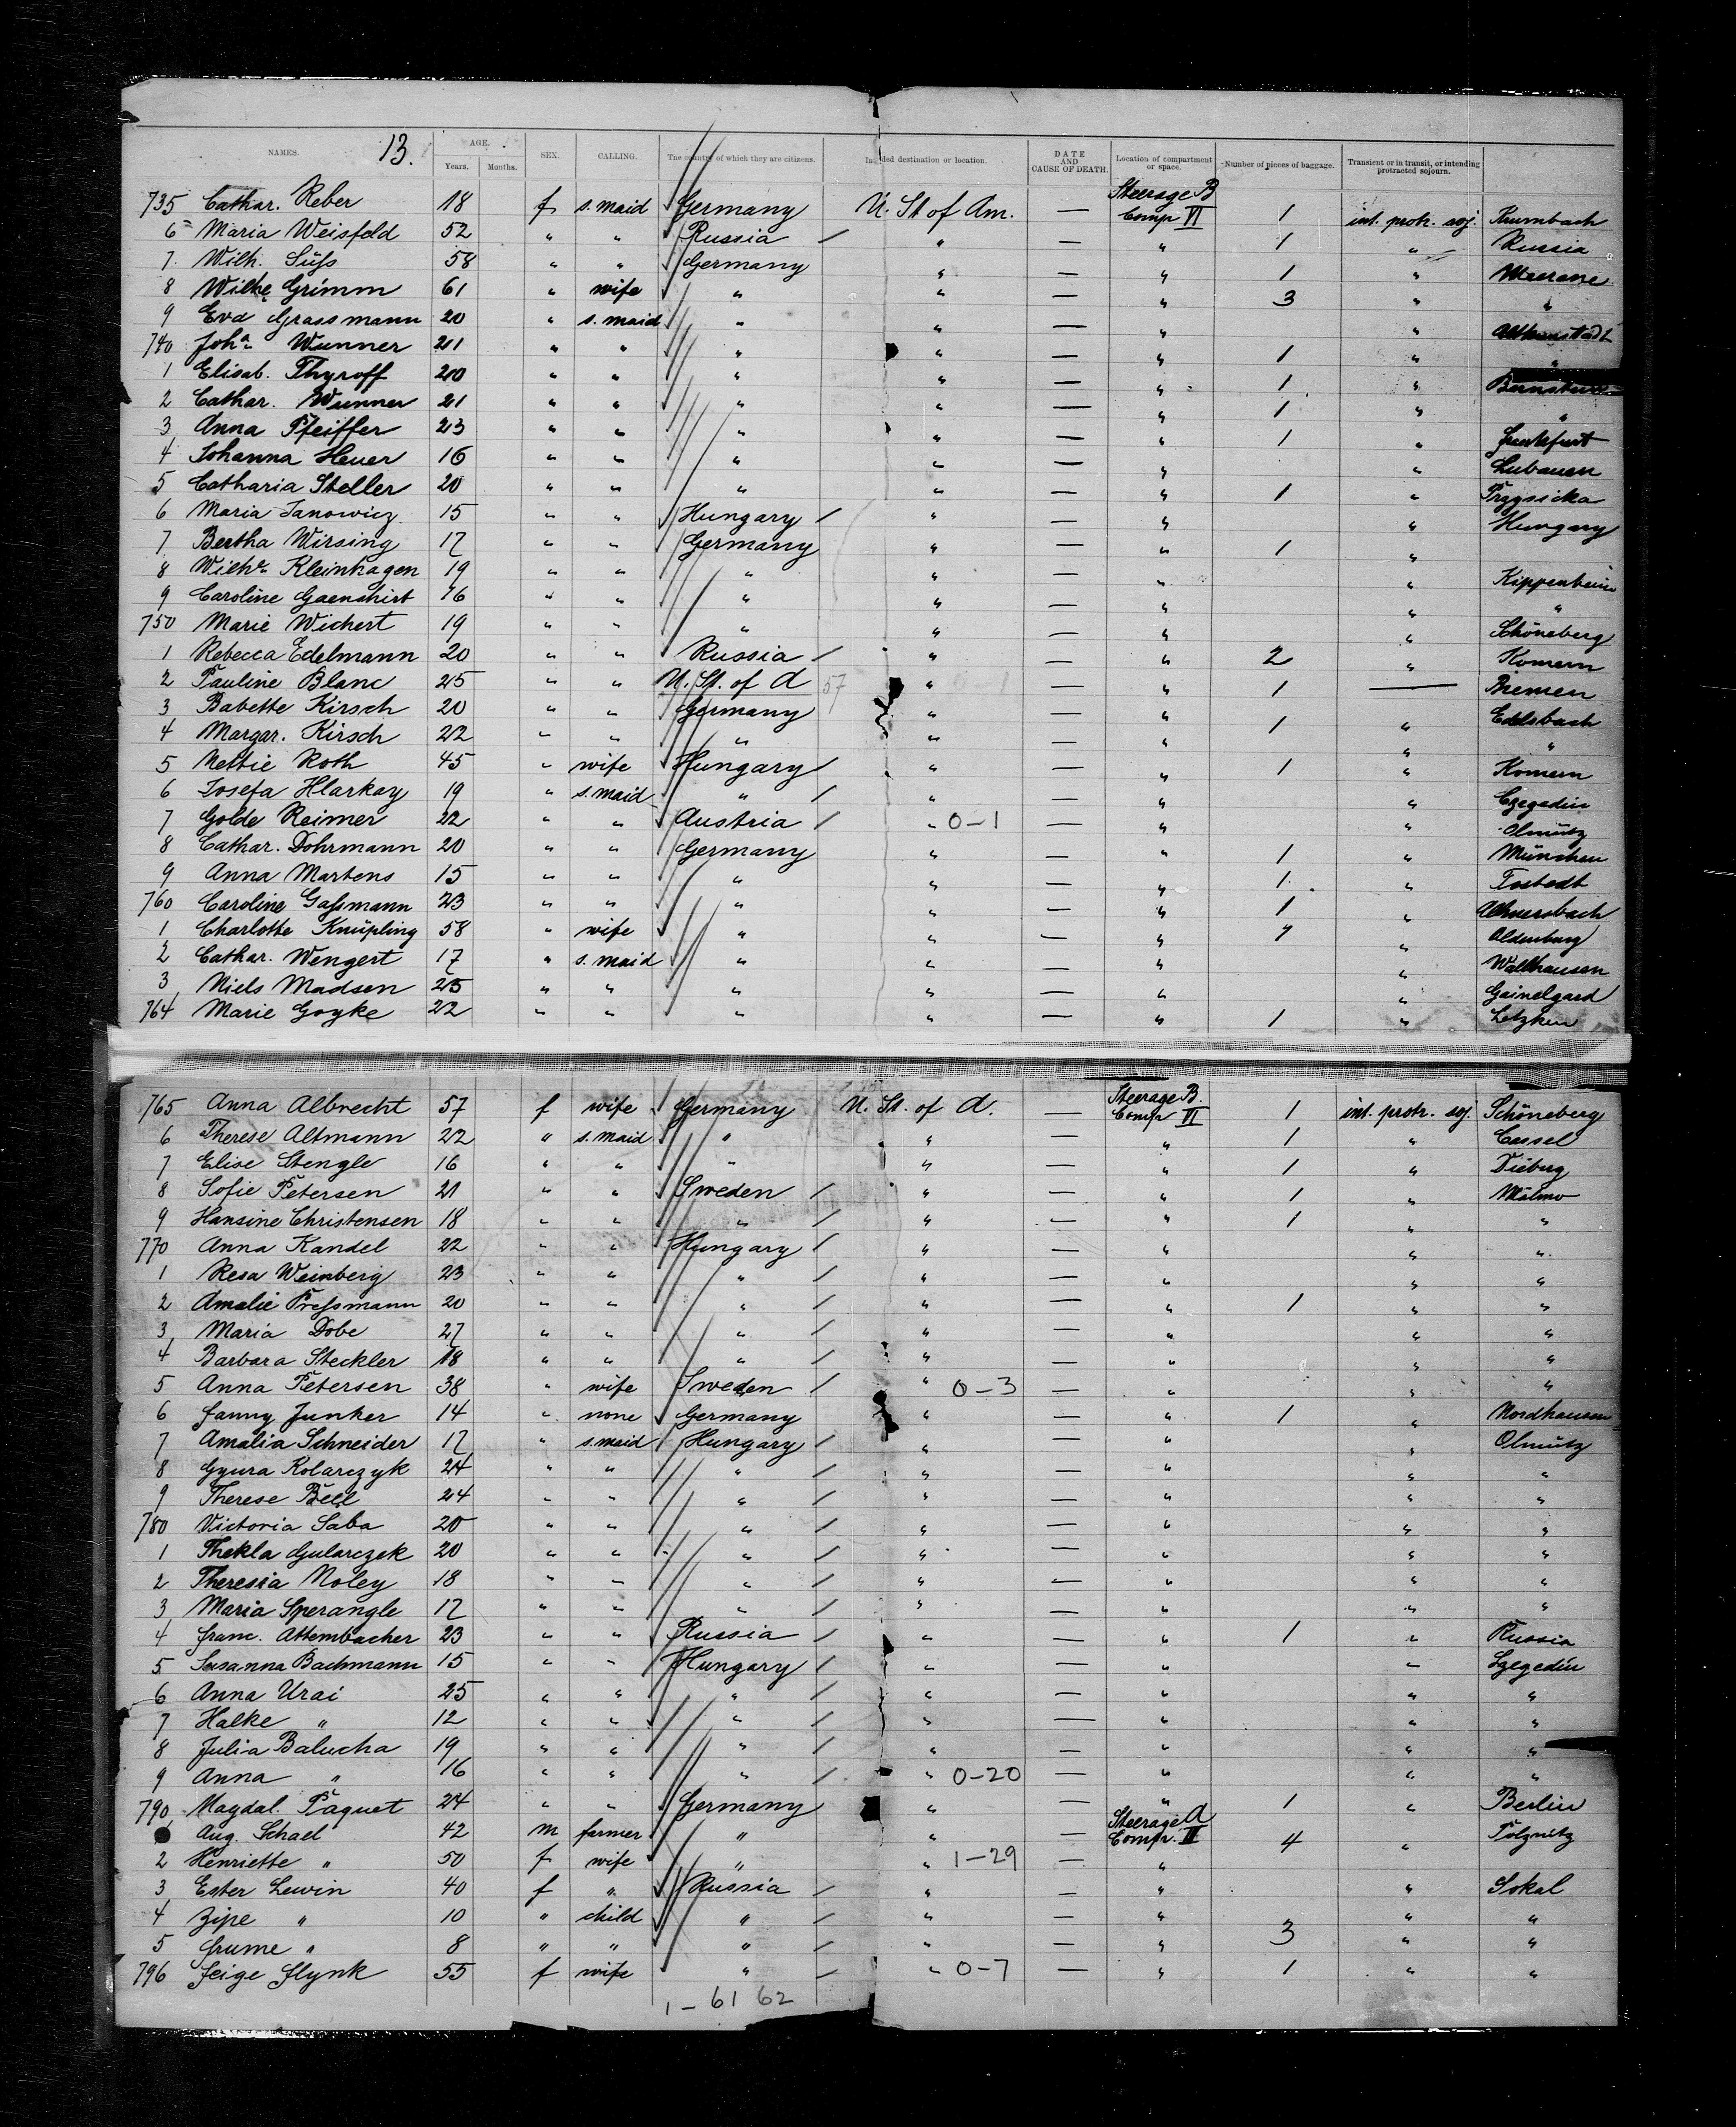 13.
NAMES. AGE. Years. Months. SEX. CALLING. The country of which they are citizens. Intended destination or location. DATE AND CAUSE OF DEATH. Location of compartment or space. Number of pieces of baggage. Transient or in transit, or intending protracted sojourn.
735 Cathar. Reber 18 f s. maid Germany U. St of Am. — Steerage B Comp VI 1 int. protr. soj. Krumbach
6 Maria Weisfeld 52 " " Russia / " — " 1 " Russia
7 Wilh. Süß 58 " " Germany " — " 1 " Meerane
8 Wilhe Grimm 61 " wife " " — " 3 " "
9 Eva Grassmann 20 " s. maid " " — " "
740 Joha Wunner 21 " " " " — " 1 " "
1 Elisab. Thyroff 20 " " " " — " 1 "
2 Cathar. Wunner 21 " " " " — " 1 " "
3 Anna Pfeiffer 23 " " " " — " 1 "
4 Johanna Heuer 16 " " " " — " " Lubauen
5 Catharia Steller 20 " " " " — " 1 "
6 Maria Janowicz 15 " " Hungary / " — " " Hungary
7 Bertha Wirsing 17 " " Germany " — " 1 "
8 Wilhe Kleinhagen 19 " " " " — " " Kippenheim
9 Caroline Gaenshirt 16 " " " " — " " "
750 Marie Wichert 19 " " " " — " " Schöneberg
1 Rebecca Edelmann 20 " " Russia / " — " 2 " Komern
2 Pauline Blanc 25 " " U. St. of A 57 " — " 1 — Bremen
3 Babette Kirsch 20 " " Germany " — " 1 " Edelsbach
4 Margar. Kirsch 22 " " " " — " " "
5 Nettie Roth 45 " wife Hungary / " — " 1 " Komern
6 Josefa Hlarkay 19 " s. maid " / " — " "
7 Golde Reimer 22 " " Austria / " 0-1 — " " Olmütz
8 Cathar. Dohrmann 20 " " Germany " — " 1 " München
9 Anna Martens 15 " " " " — " 1 " Tostedt
760 Caroline Gaßmann 23 " " " " — " 1 "
1 Charlotte Knüpling 58 " wife " " — " "
2 Cathar. Wengert 17 " s. maid " " — " " Wallhausen
3 Niels Madsen 25 " " " " — " "
764 Marie Goyke 22 " " " " — " 1 " Letzken
765 Anna Albrecht 57 f wife Germany U. St. of A. — Steerage B. Comp VI 1 int. protr. soj. Schöneberg
6 Therese Altmann 22 " s. maid " " — " 1 " Cassel
7 Elise Stengle 16 " " " " — " 1 " Dieburg
8 Sofie Petersen 21 " " Sweden / " — " 1 " Malmo
9 Hansine Christensen 18 " " " / " — " 1 " "
770 Anna Kandel 22 " " Hungary / " — " " "
1 Resa Weinberg 23 " " " / " — " " "
2 Amalie Preßmann 20 " " " / " — " 1 " "
3 Maria Dobe 27 " " " / " — " " "
4 Barbara Steckler 18 " " " / " — " " "
5 Anna Petersen 38 " wife Sweden / " 0-3 — " " "
6 Fanny Junker 14 " none Germany " — " 1 " Nordhausen
7 Amalia Schneider 17 " s. maid Hungary / " — " " Olmütz
8 Gyura Kolarczyk 24 " " " / " — " " "
9 Therese Bell 24 " " " / " — " " "
780 Victoria Saba 20 " " " / " — " " "
1 Thekla Gularczek 20 " " " / " — " " "
2 Theresia Noley 18 " " " / " — " " "
3 Maria Sperangle 17 " " " / " — " " "
4 Franc. Attembacher 23 " " Russia / " — " 1 " Russia
5 Susanna Bachmann 15 " " Hungary / " — " " Szegedin
6 Anna Urai 25 " " " / " — " " "
7 Halke " 12 " " " / " — " " "
8 Julia Balucha 19 " " " / " — " " "
9 Anna " 16 " " " / " 0-20 — " " "
790 Magdal. Paquet 24 " " Germany " — " 1 " Berlin
Aug. Schael 42 m farmer " " — Steerage A Comp. III 4 " Polznitz
2 Henriette " 50 f wife " " 1-29 — "
3 Ester Lewin 40 f " Russia / " — " " Sokal
4 Zipe " 10 " child " / " — " " "
5 Frume " 8 " " " / " — " 3 " "
796 Feige Flynk 55 f wife " / " 0-7 — " 1 " "
1-61 62